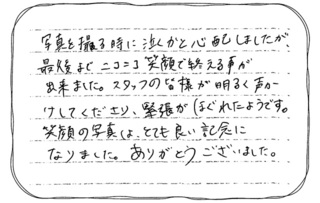 写真を撮る時に泣くかと心配しましたが、
最後までニコニコ笑顔で終える事が
出来ました。スタッフの皆様が明るく声か
けしてくださり、緊張がほぐれたようです。
笑顔の写真は、とても良い記念に
なりました。ありがとうございました。